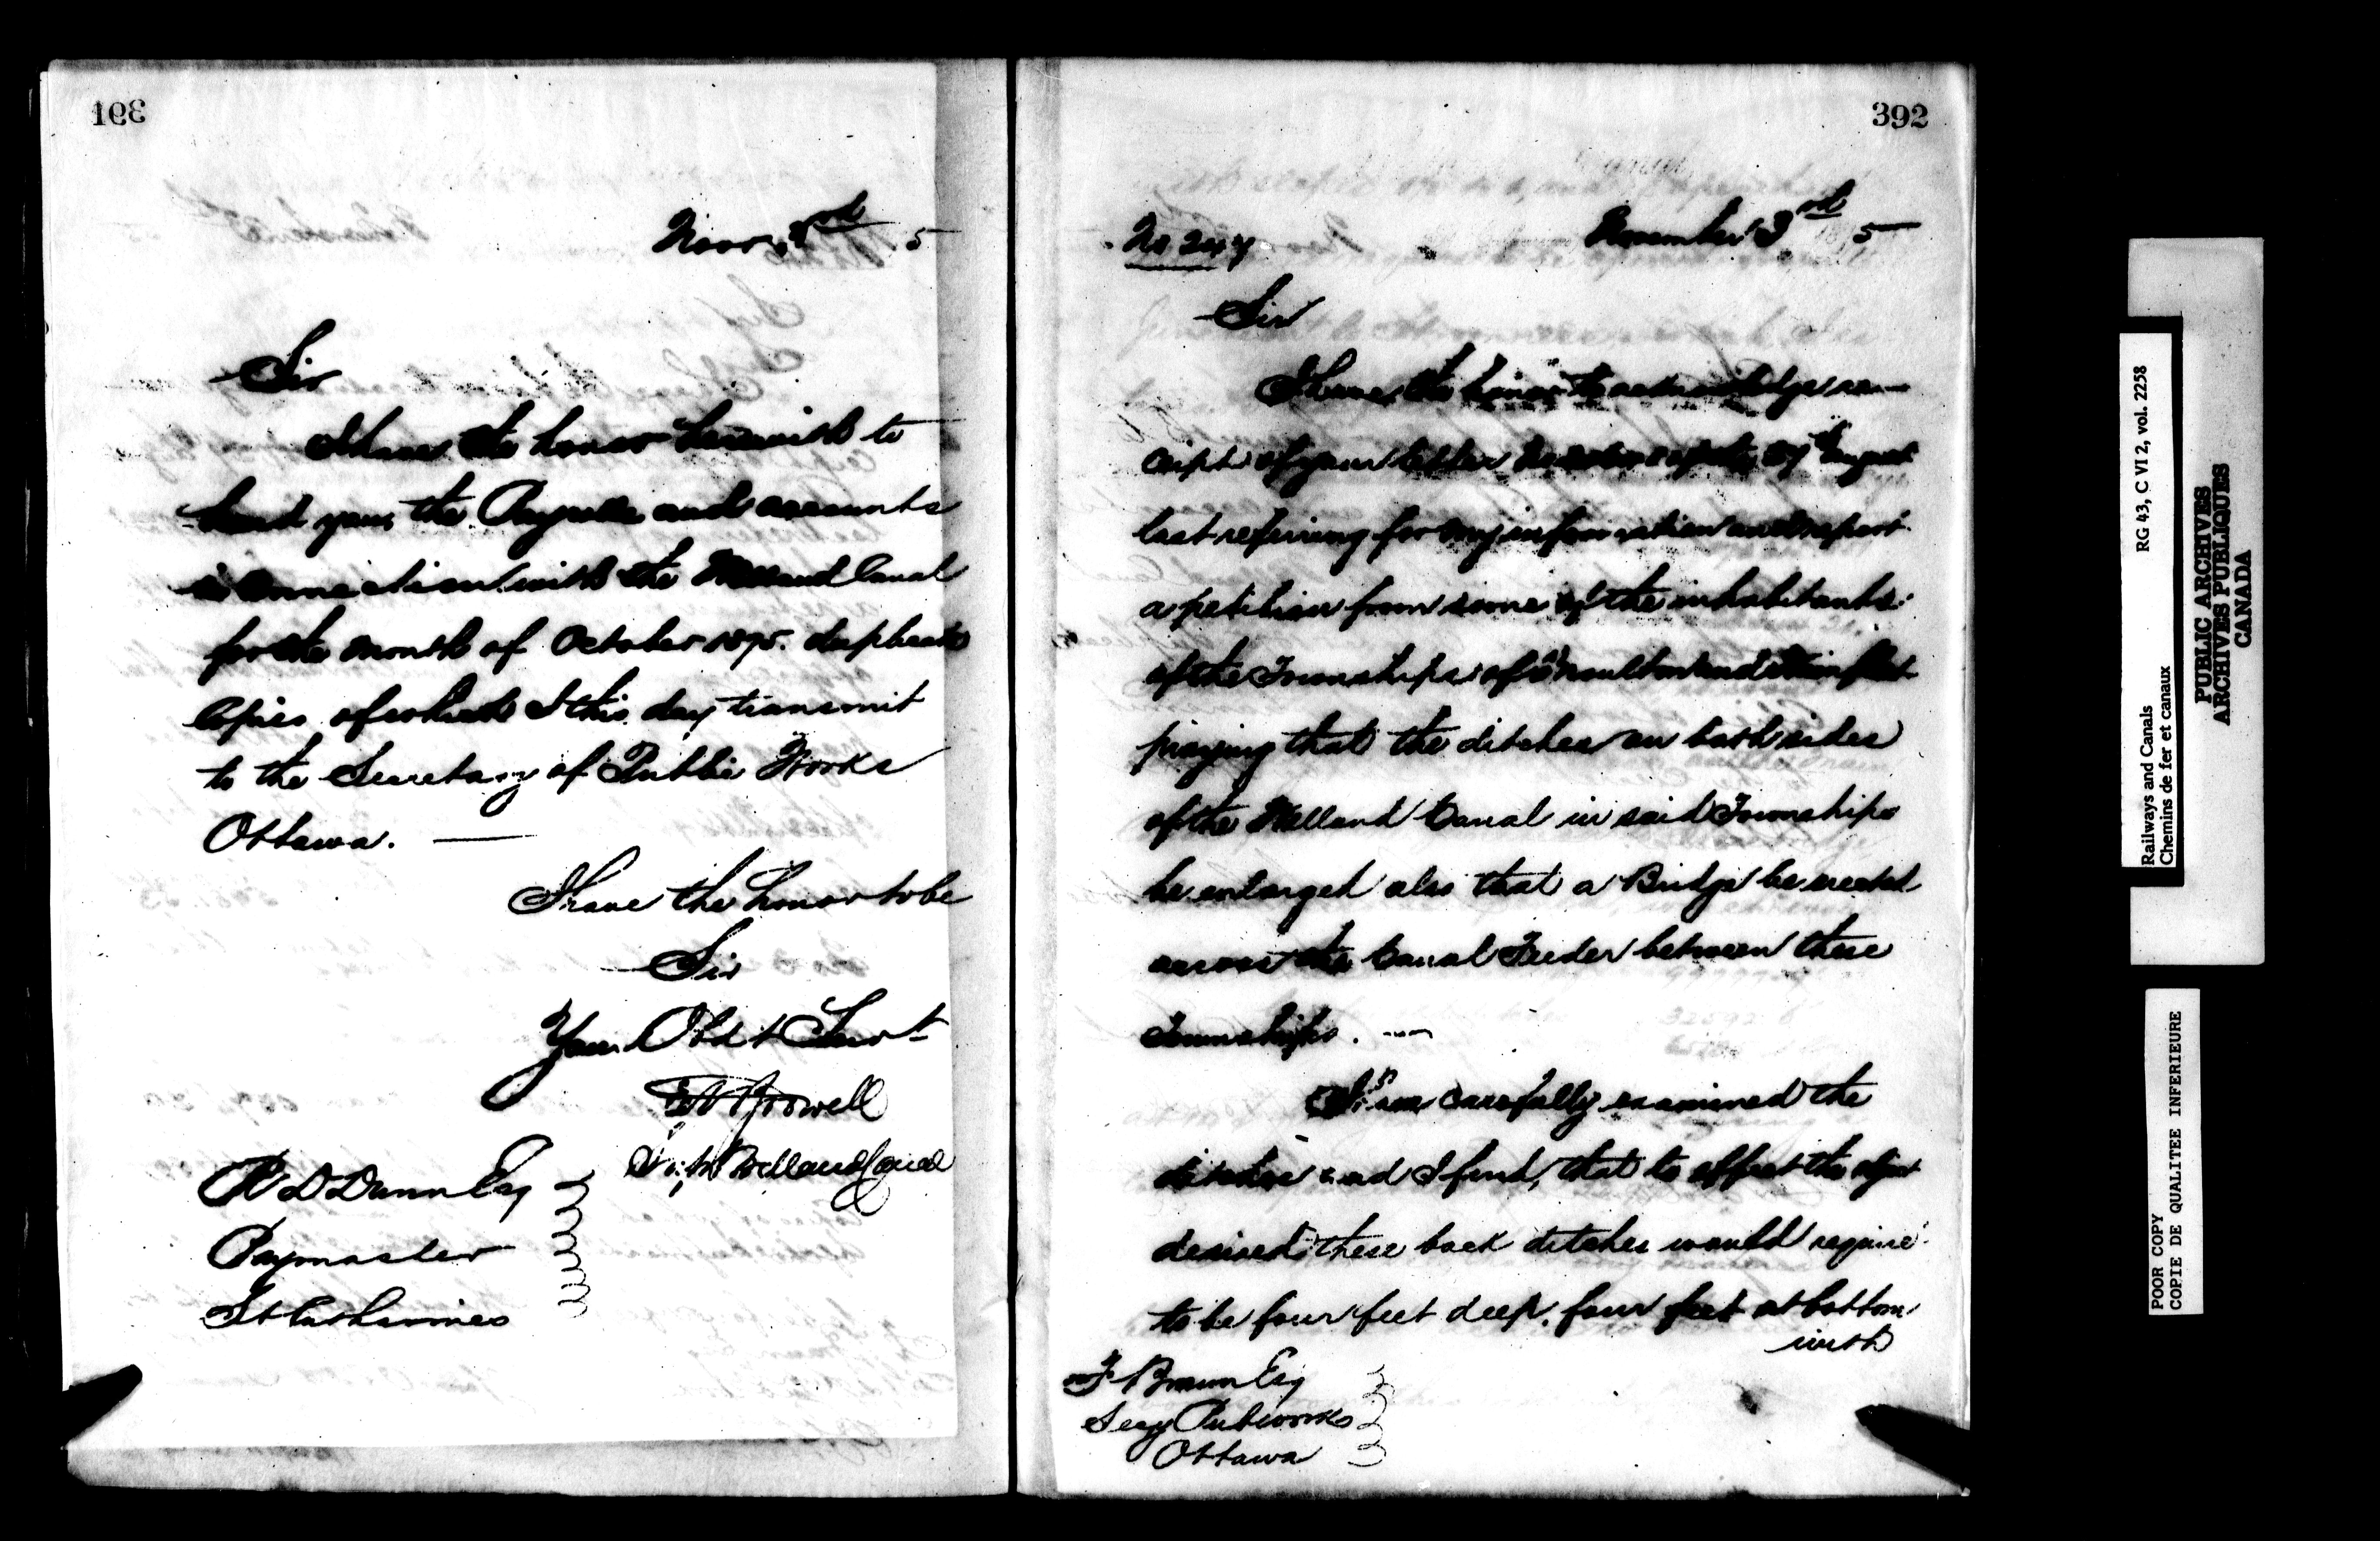 391
Novr 3rd 5
Sir
I have the honor herewith to
hand you, the Payrolls and accounts
in connection with the Welland Canal
for the month of October 1875. duplicate
Copies of which I this day transmit
to the Secretary of Public Works
Ottawa.
I have the honor to be
Sir
Your Obdt Servt
Bodwell
Supt Welland Canal
R D Dunn Esq
Paymaster
St Catharines
392
No 247
November 3rd 5
Sir
I have the honor to acknowledge re-
ceipt of your letter August
last referring for my information and report
a petition from some of the inhabitants
of the Townships of Moulton and Wainfleet
praying that the ditches on both sides
of the Welland Canal in said Townships
be enlarged also that a Bridge be erected
across the Canal Feeder between these
Townships.
carefully examined the
ditches and I find, that to effect the object
desired these back ditches would require
to be four feet deep, four feet at bottom
with
F Braun Esq
Secy Pub works
Ottawa
Railways and Canals RG 43, C VI 2, vol. 2258
Chemins de fer et canaux
PUBLIC ARCHIVES
ARCHIVES PUBLIQUES
CANADA
POOR COPY
COPIE DE QUALITEE INFERIEURE